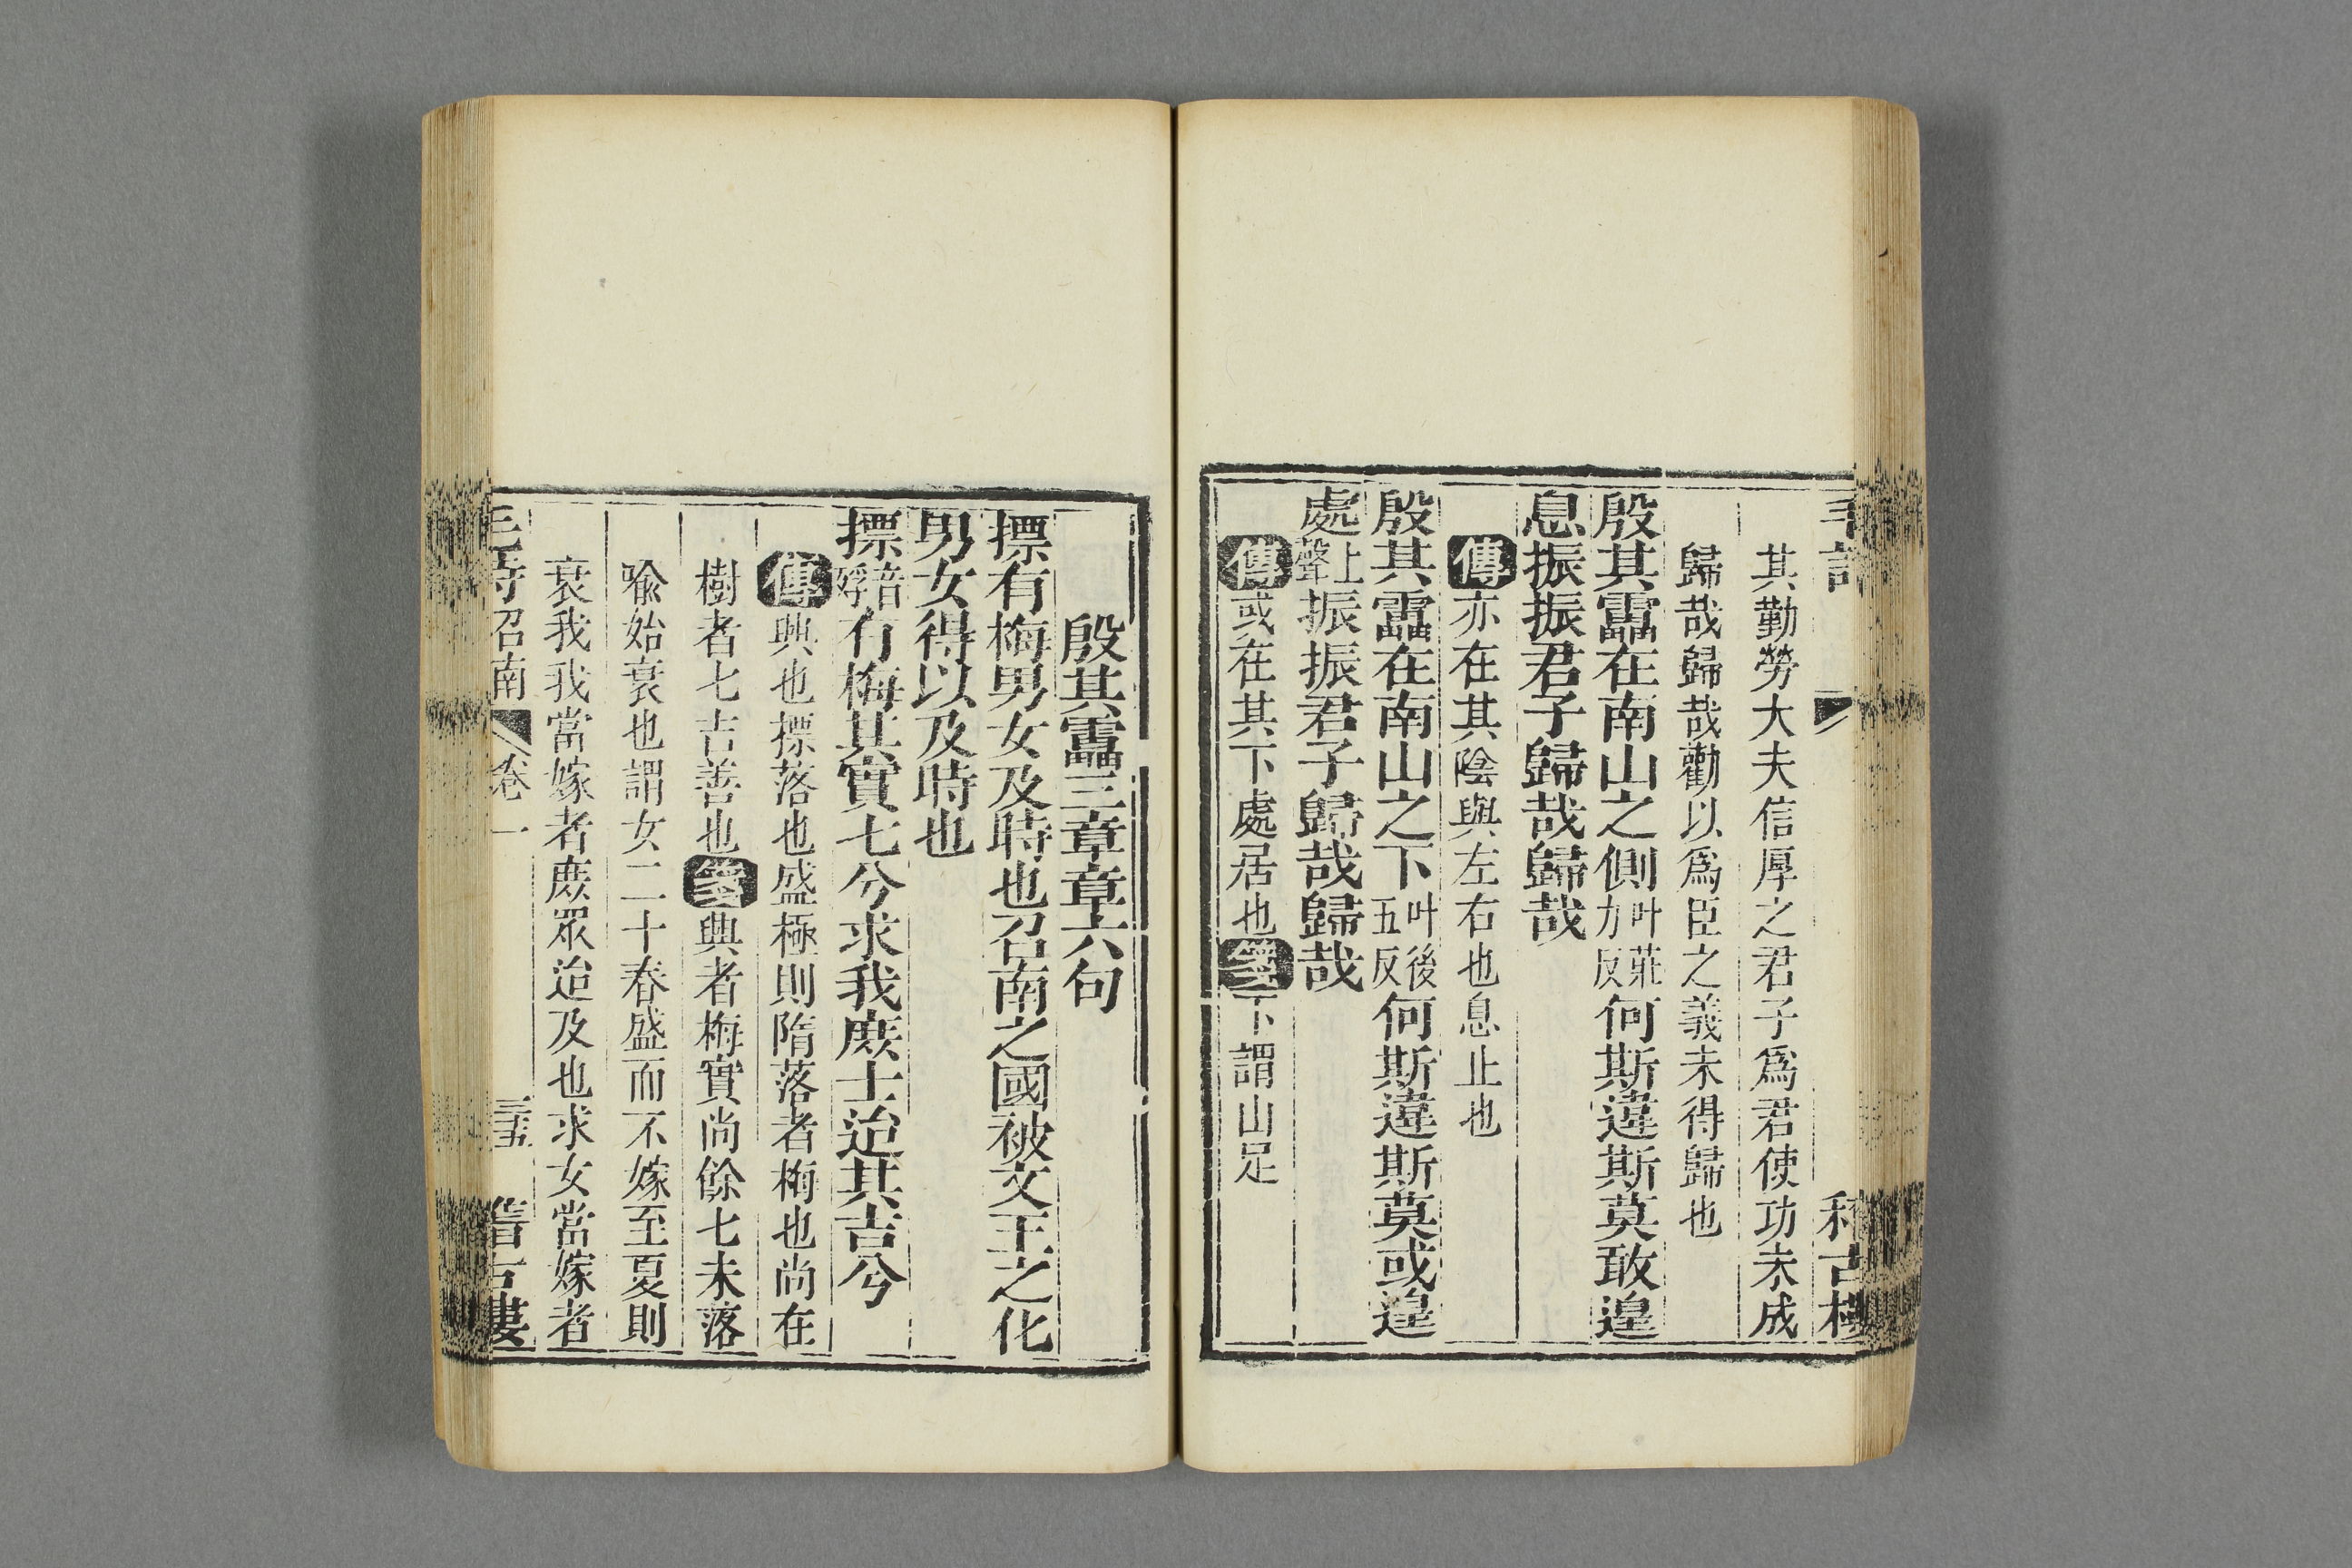 毛詩
稽古樓
其勤勞大夫信厚之君子爲君使功未成
歸哉歸哉勸以爲臣之義未得歸也
殷其靁在南山之側叶莊力反何斯違斯莫敢遑
息振振君子歸哉歸哉
傳亦在其陰與左右也息止也
殷其靁在南山之下叶後五反何斯違斯莫或遑
處上聲振振君子歸哉歸哉
傳或在其下處居也箋下謂山足
殷其靁三章章六句
摽有梅男女及時也召南之國被文王之化
男女得以及時也
摽音殍有梅其實七兮求我庶士迨其吉兮
傳興也摽落也盛極則隋落者梅也尚在
樹者七吉善也箋興者梅實尚餘七未落
喻始衰也謂女二十春盛而不嫁至夏則
衰我我當嫁者庶眾迨及也求女當嫁者
毛詩召南 卷一 三十五 稽古樓